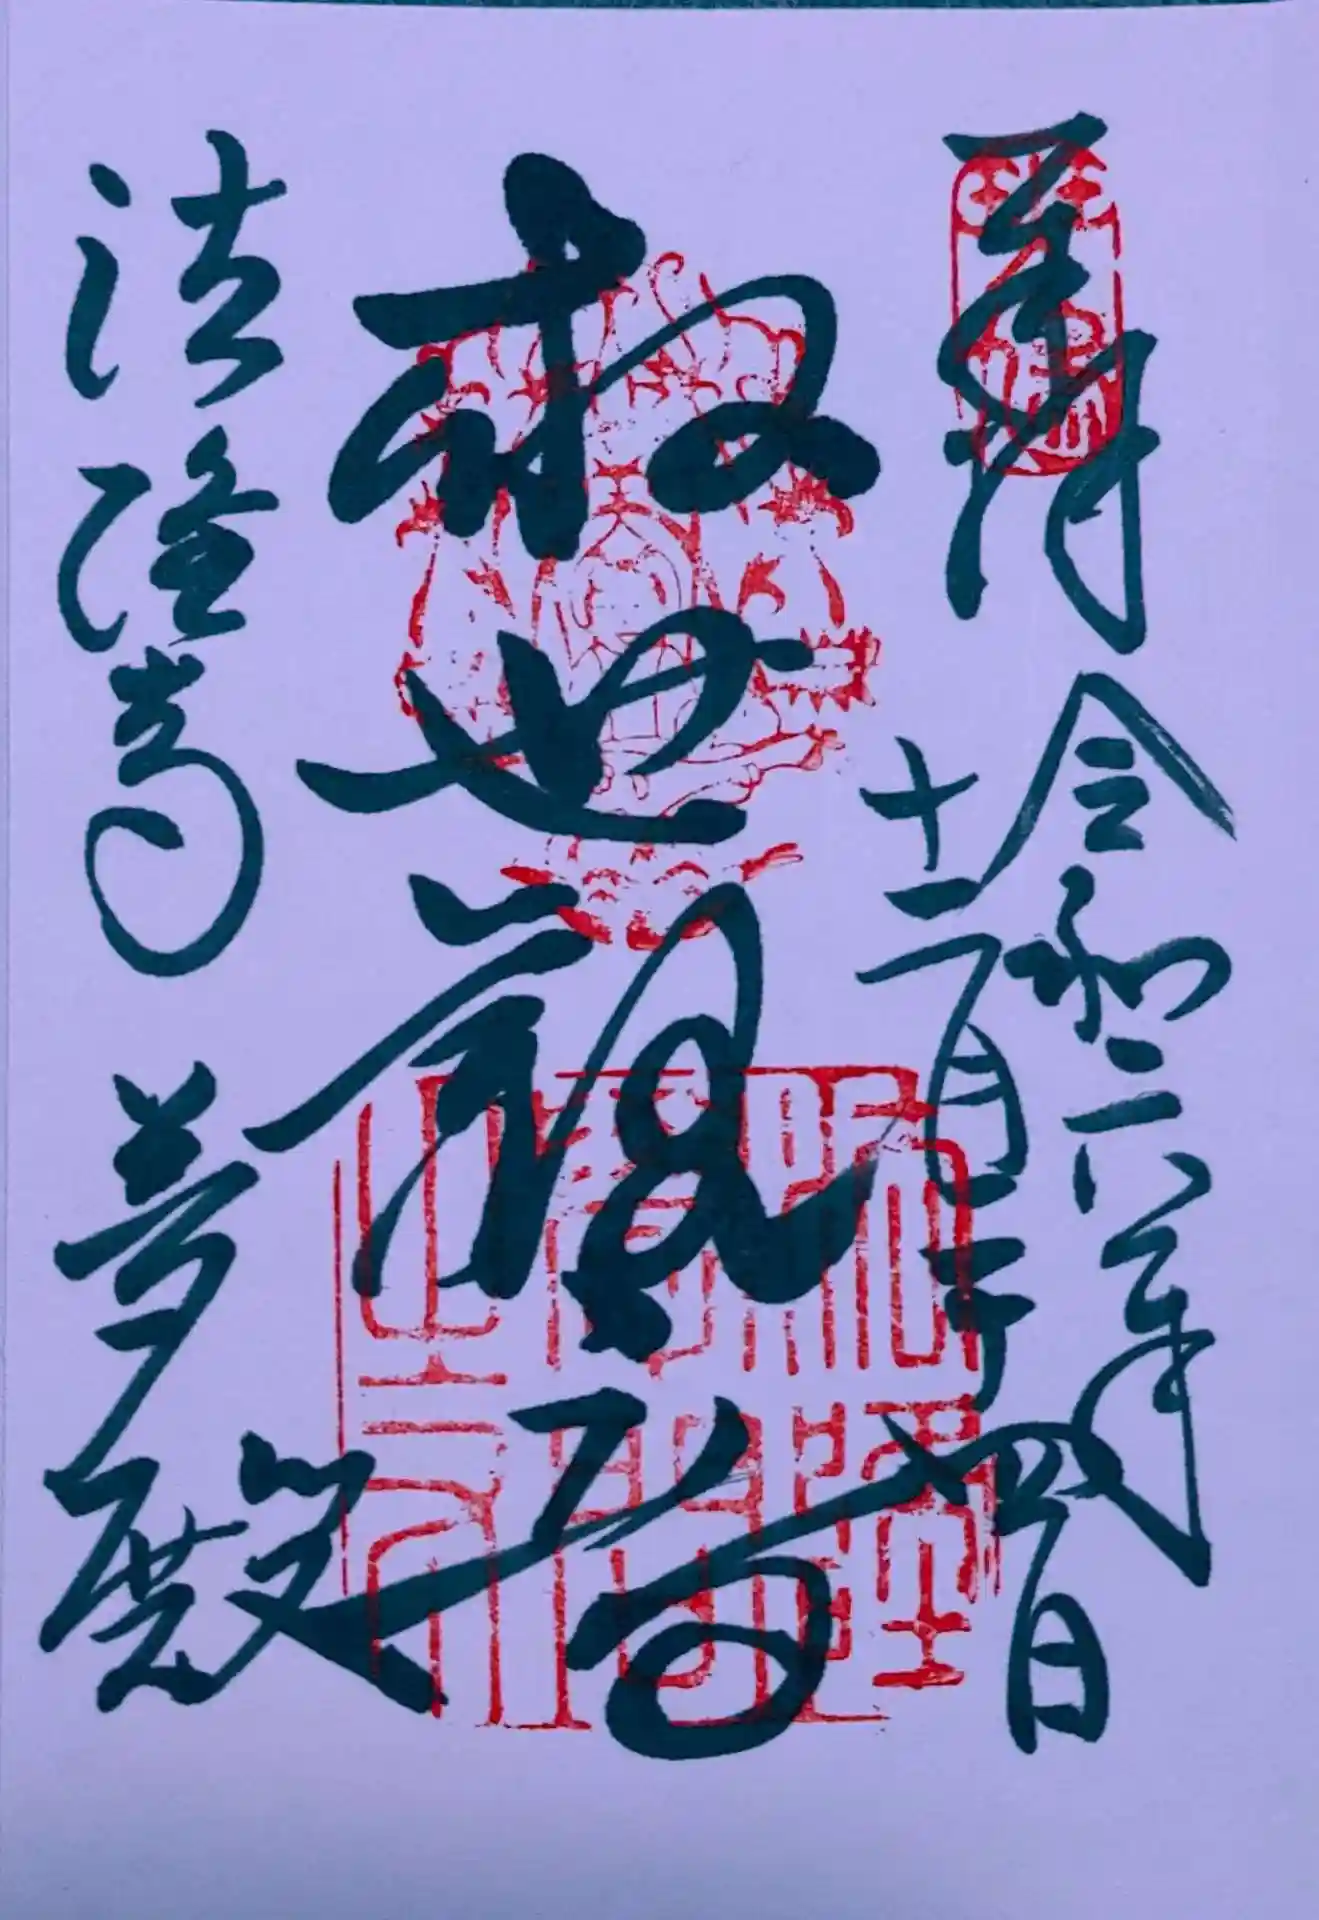 奉拝
令和六年
十二月二十四日
救世観音
法隆寺 夢殿